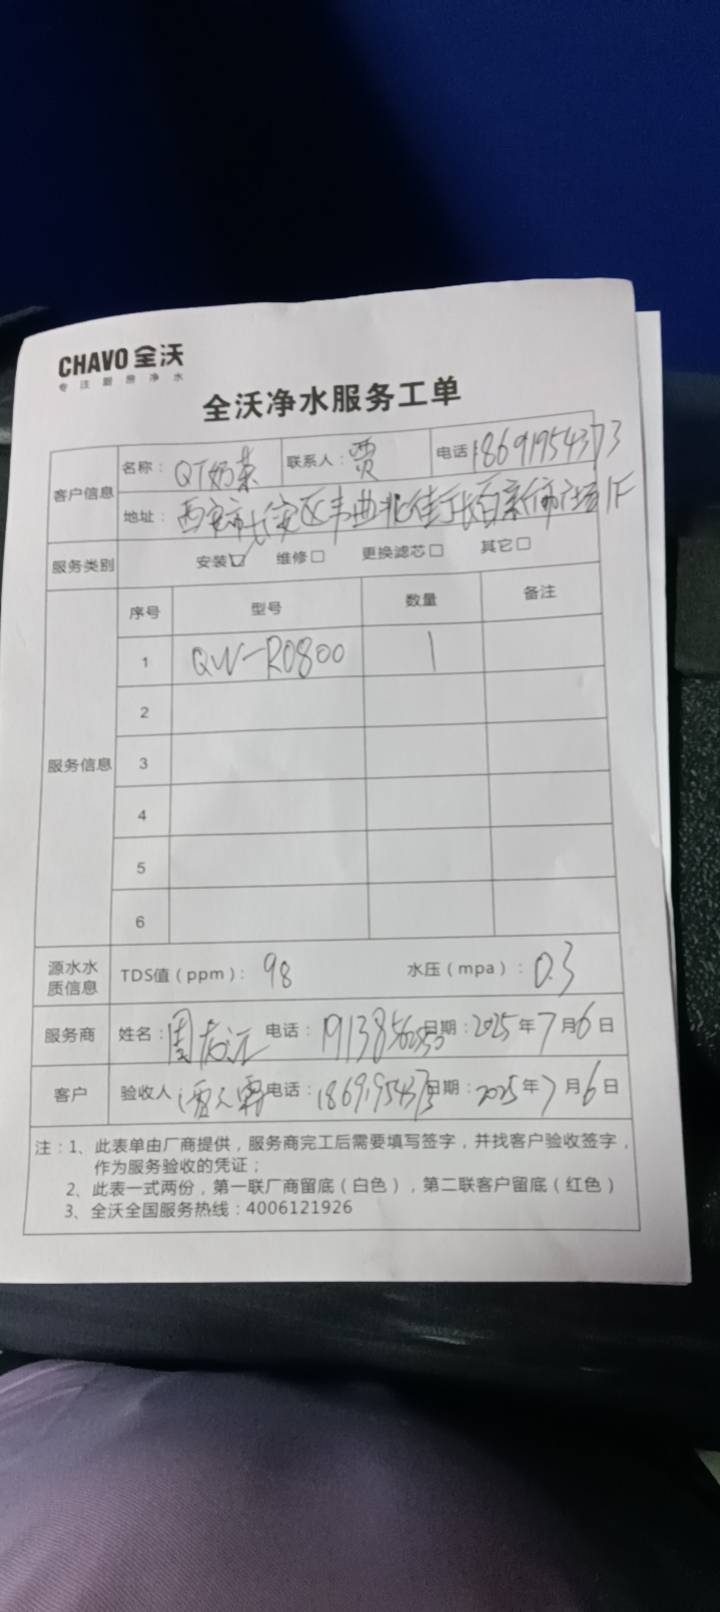 CHAVO 全沃
专注厨房净水
全沃净水服务工单
客户信息
名称：QT奶茶 联系人：贾 电话 18691954373
地址：西安市长安区韦曲北街于长百亲佰市场1F
服务类别 安装☑ 维修□ 更换滤芯□ 其它□
服务信息
序号 型号 数量 备注
1 QW-RO800 1
2
3
4
5
6
源水水质信息 TDS值（ppm）：98 水压（mpa）：0.3
服务商 姓名：周 电话： 日期：2025年7月6日
客户 验收人 电话：18691954373 日期：2025年7月6日
注：1、此表单由厂商提供，服务商完工后需要填写签字，并找客户验收签字，
作为服务验收的凭证；
2、此表一式两份，第一联厂商留底（白色），第二联客户留底（红色）
3、全沃全国服务热线：4006121926